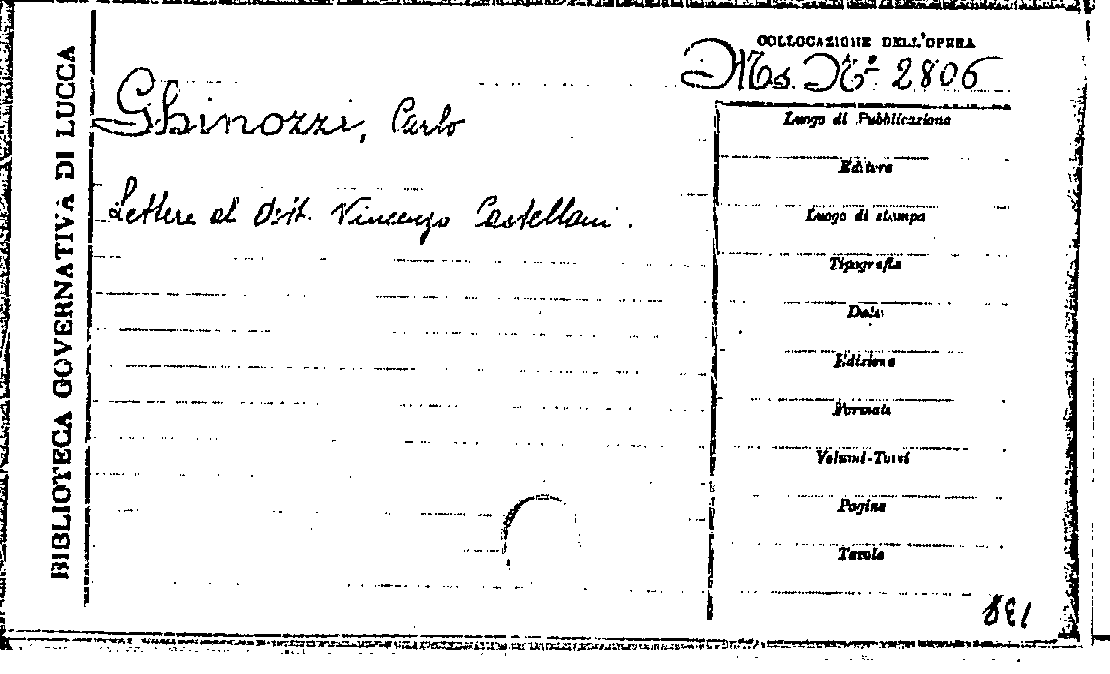 BIBLIOTECA GOVERNATIVA DI LUCCA
COLLOCAZIONE DELL'OPERA
Ms. N.º 2806
Ghinozzi, Carlo
Lettere al Dott. Vincenzo Castellani.
Luogo di Pubblicazione
Editore
Luogo di stampa
Tipografia
Data
Edizione
Formato
Volumi-Tomi
Pagine
Tavole